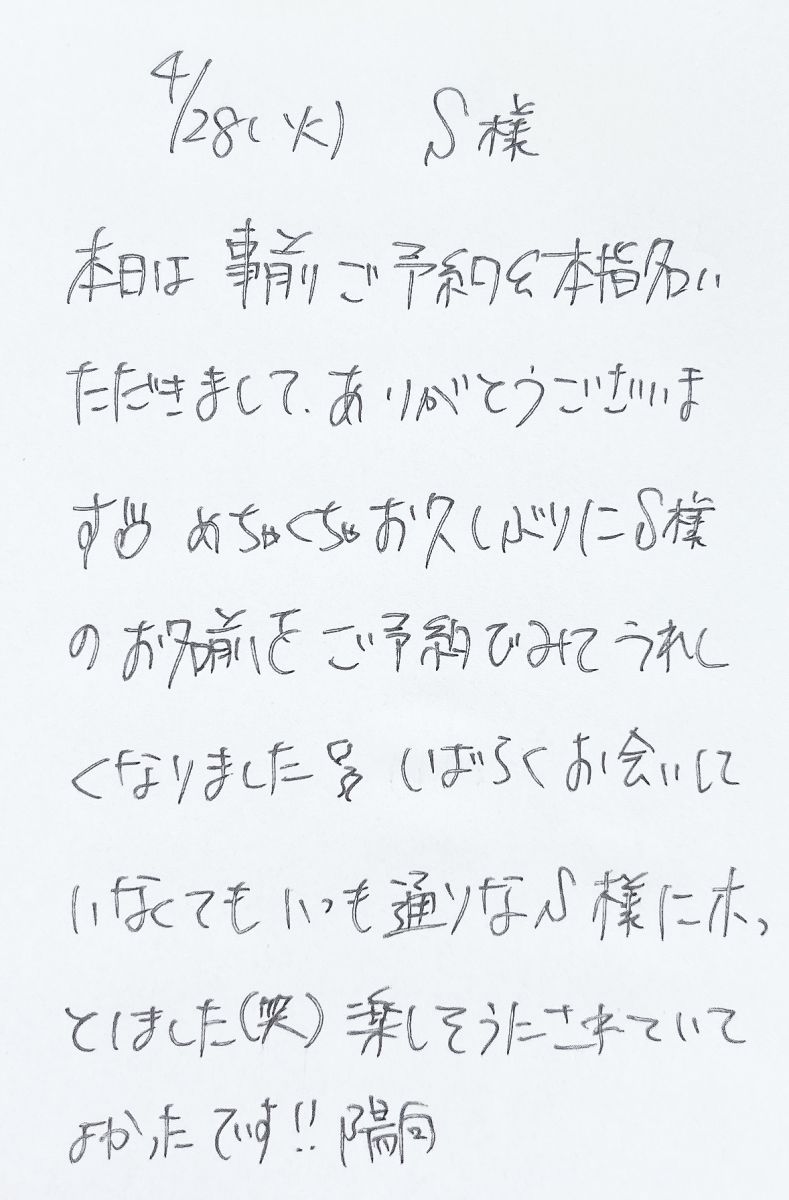 4/28(火) S様
本日は事前ご予約&本指名い
ただきまして、ありがとうございま
す めちゃくちゃお久しぶりにS様
のお名前をご予約でみてうれし
くなりました しばらくお会いして
いなくてもいつも通りなS様にホッ
としました(笑) 楽しそうにされていて
よかったです!! 陽向